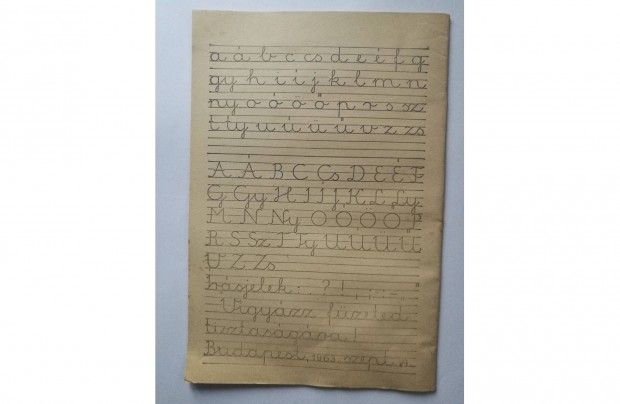 a á b c cs d e é f g
gy h i í j k l m n
ny o ó ö ő p r s sz
t ty u ú ü ű v z zs
A Á B C Cs D E É F
G Gy H I Í J K L Ly
M N Ny O Ó Ö Ő P
R S Sz T Ty U Ú Ü Ű
V Z Zs
Írásjelek: ? !
Vigyázz füzeted
tisztaságára!
Budapest, 1963. szept.